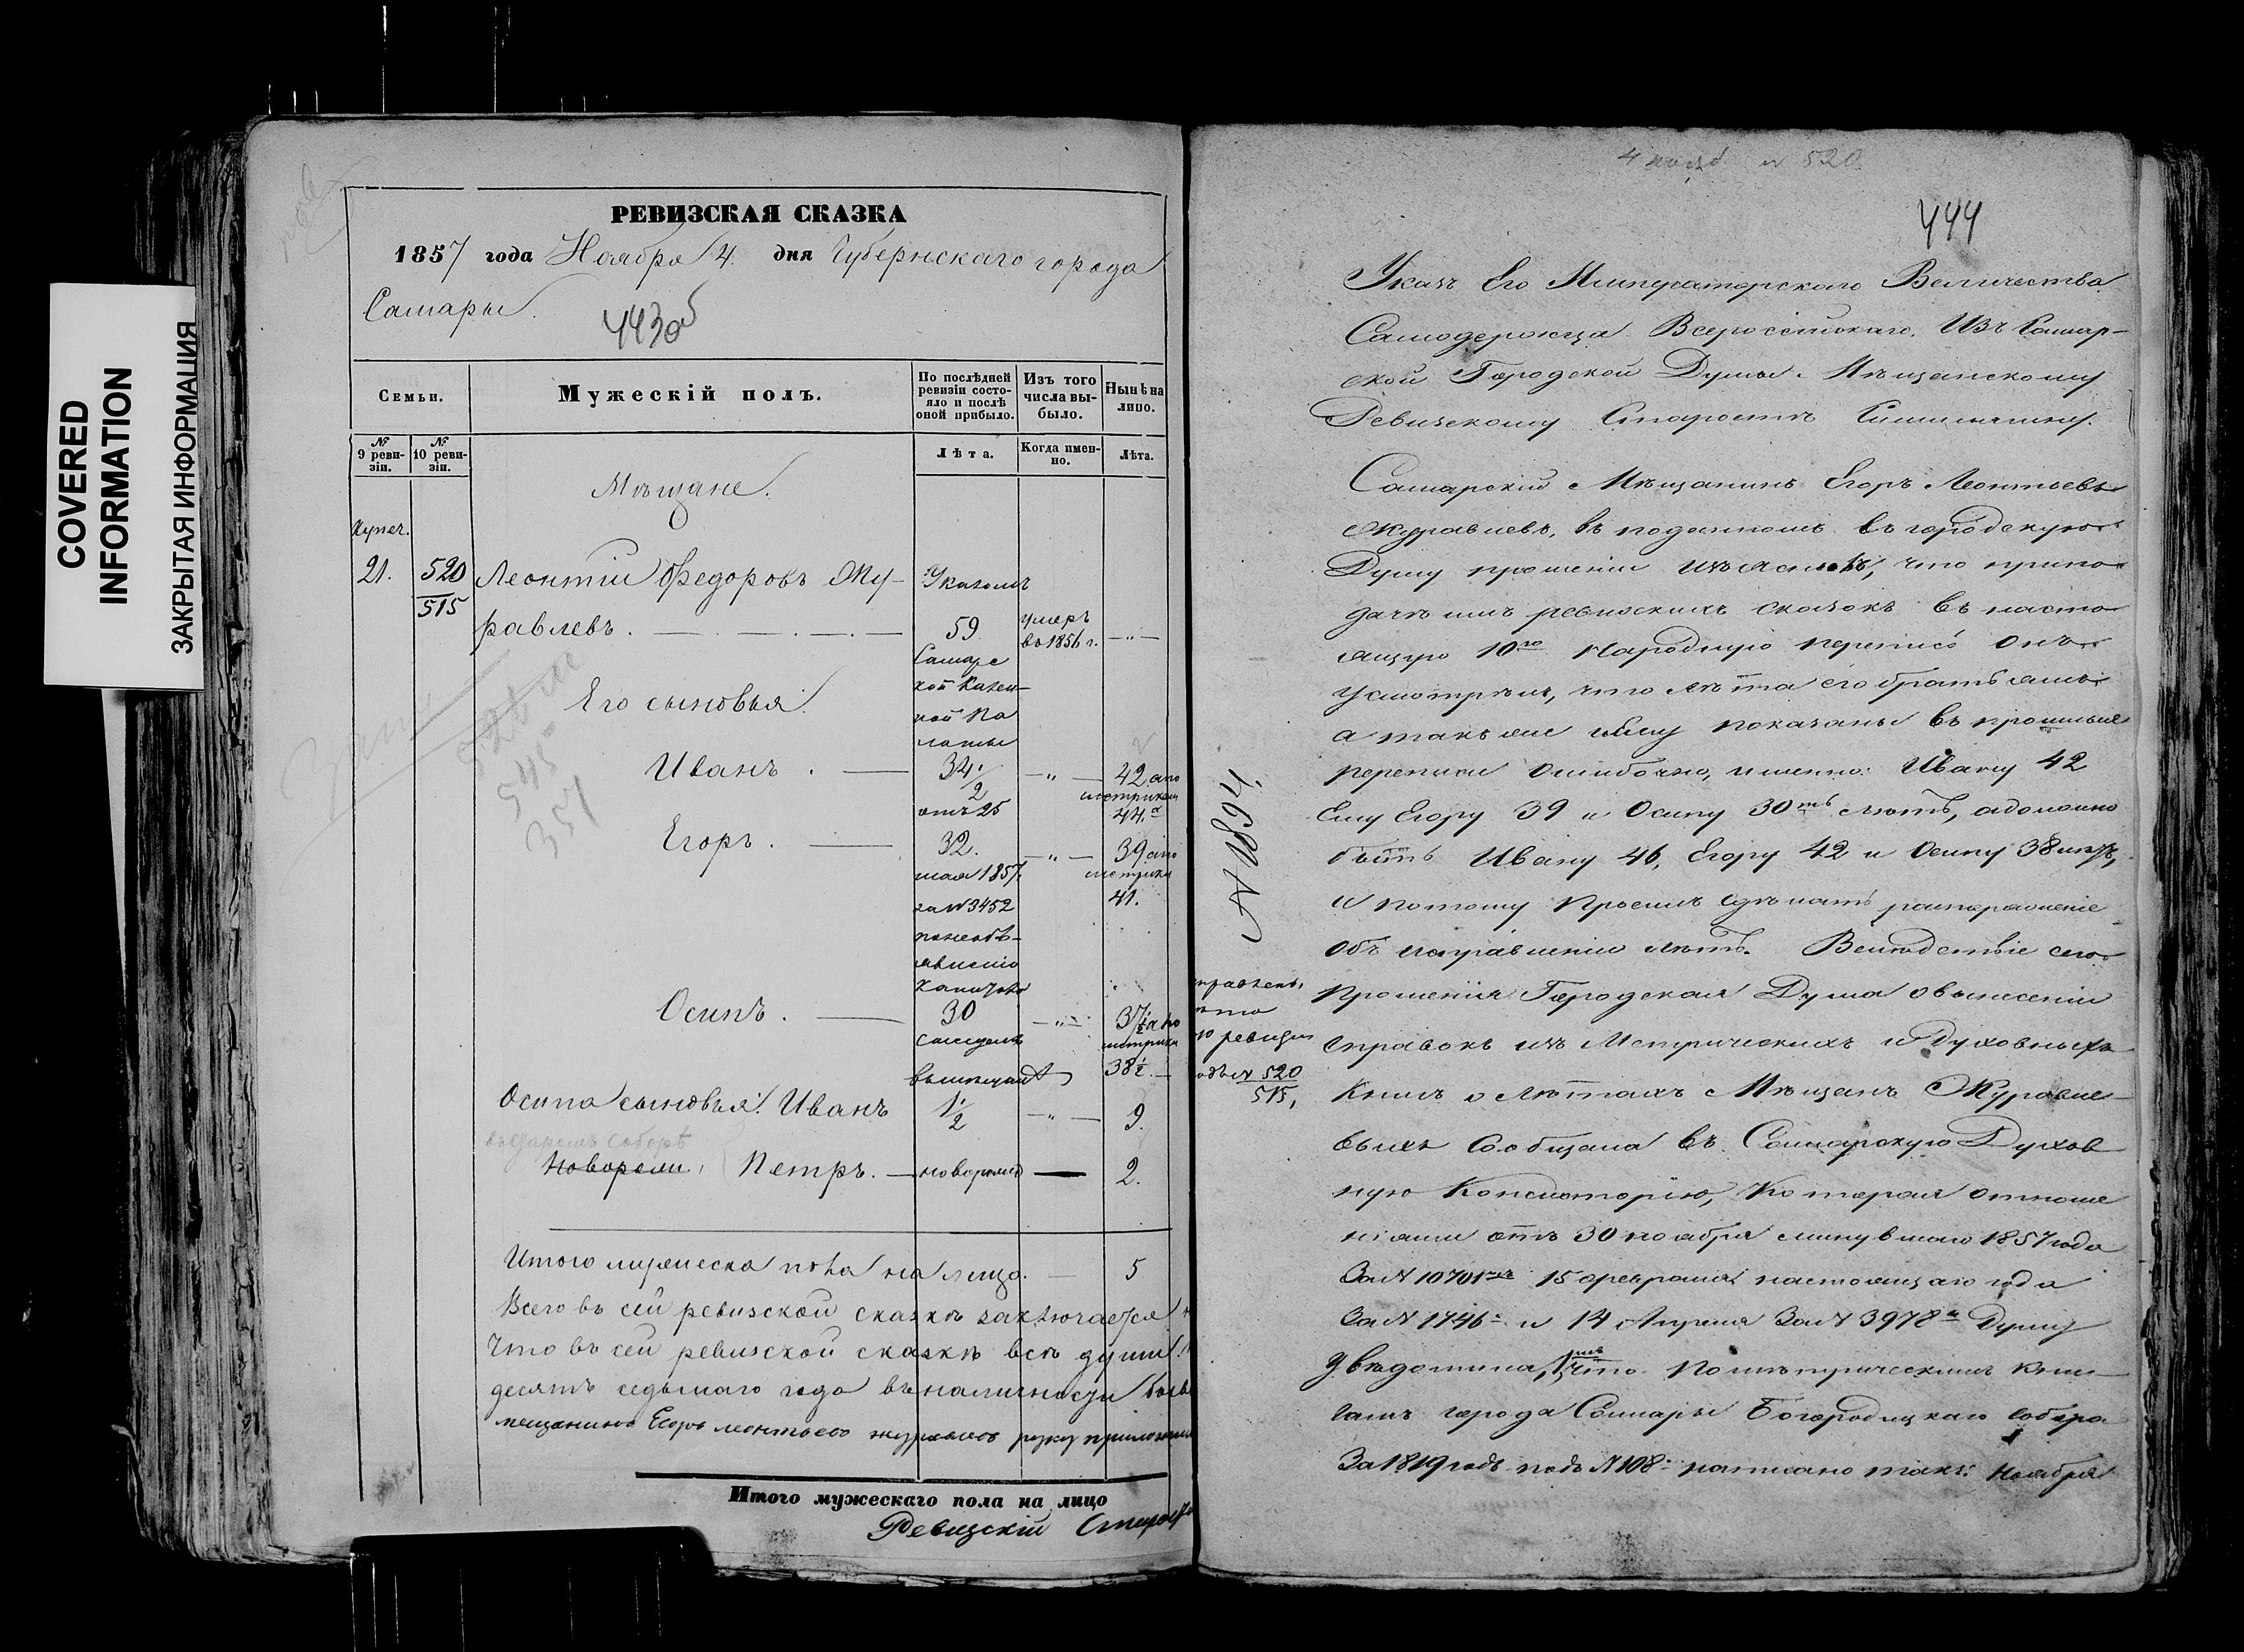 COVERED
INFORMATION
ЗАКРЫТАЯ ИНФОРМАЦИЯ
РЕВИЗСКАЯ СКАЗКА
1857 года Ноября 4. дня Губернскаго города
Самары.
443об
Семьи.
Мужескій полъ.
По послѣдней ревизіи состояло и послѣ оной прибыло.
Изъ того числа выбыло.
Нынѣ на лицо.
№ 9 ревизіи.
№ 10 ревизіи.
Лѣта.
Когда именно.
Лѣта.
Мѣщане.
Купеч.
21. 520 Леонтій Федоровъ Жу- Указомъ
515
равлевъ. 59 умеръ въ 1856 г. —"—
Самарс
кой Казен-
ной Па
латы
Его сыновья:
Иванъ. 34. —"— 42 а по
2 метрикамъ
отъ 25 44.
Егоръ. 32. —"— 39 а по
мая 1857 метрики
за № 3452 41.
Осипъ. 30 —"— 37½ а по
метрики
38½.
Осипа сыновья: Иванъ ½ —"— 9.
Новорож. Петръ. — новорожд — 2.
Итого мужеска пола на лицо. — 5
Всего въ сей ревизской сказкѣ заключается
Что въ сей ревизской сказкѣ всѣ души
десятъ седьмаго года въ наличности
мещанинъ Егоръ Леонтьевъ Журавлевъ руку приложилъ
Итого мужескаго пола на лицо
Ревизскій Старо
4 № 520
444
Указъ Его Императорскаго Величества
Самодержца Всероссійскаго. Изъ Самар-
ской Городской Думы. Мѣщанскому
Ревизскому Старостѣ
Самарскій Мѣщанинъ Егоръ Леонтьевъ
Журавлевъ, въ поданномъ въ городскую
Думу прошеніи изъяснилъ, что припо-
дачѣ имъ ревизскихъ сказокъ въ насто-
ящую 10ю Народную перепись онъ
усмотрѣлъ, что лѣта его братьямъ
а также и ему показаны въ прошлыя
переписи ошибочно, именно: Ивану 42
Ему Егору 39 и Осипу 30ть лѣтъ, адолжно
быть Ивану 46, Егору 42 и Осипу 38 лѣтъ,
и потому просилъ сдѣлать распоряженіе
объ исправленіи лѣтъ. Вслѣдствіе сего
прошенія Городская Дума о вынесеніи
справокъ изъ Метрическихъ и Духовныхъ
Книгъ о лѣтахъ Мѣщанъ Журавле-
выхъ Сообщала въ Самарскую Духов
ную Консисторію, Которая отноше
ніями отъ 30 ноября минувшаго 1857 года
За № 10701 15 февраля настоящаго года
За № 1746 и 14 Апреля За № 3978 Думу
увѣдомила, что по метрическимъ Кни-
гамъ города Самары Богородицкаго Собора
За 1819 годъ подъ № 108 написано такъ: Ноября
№ 1894
ревизіи
№ 520
515,